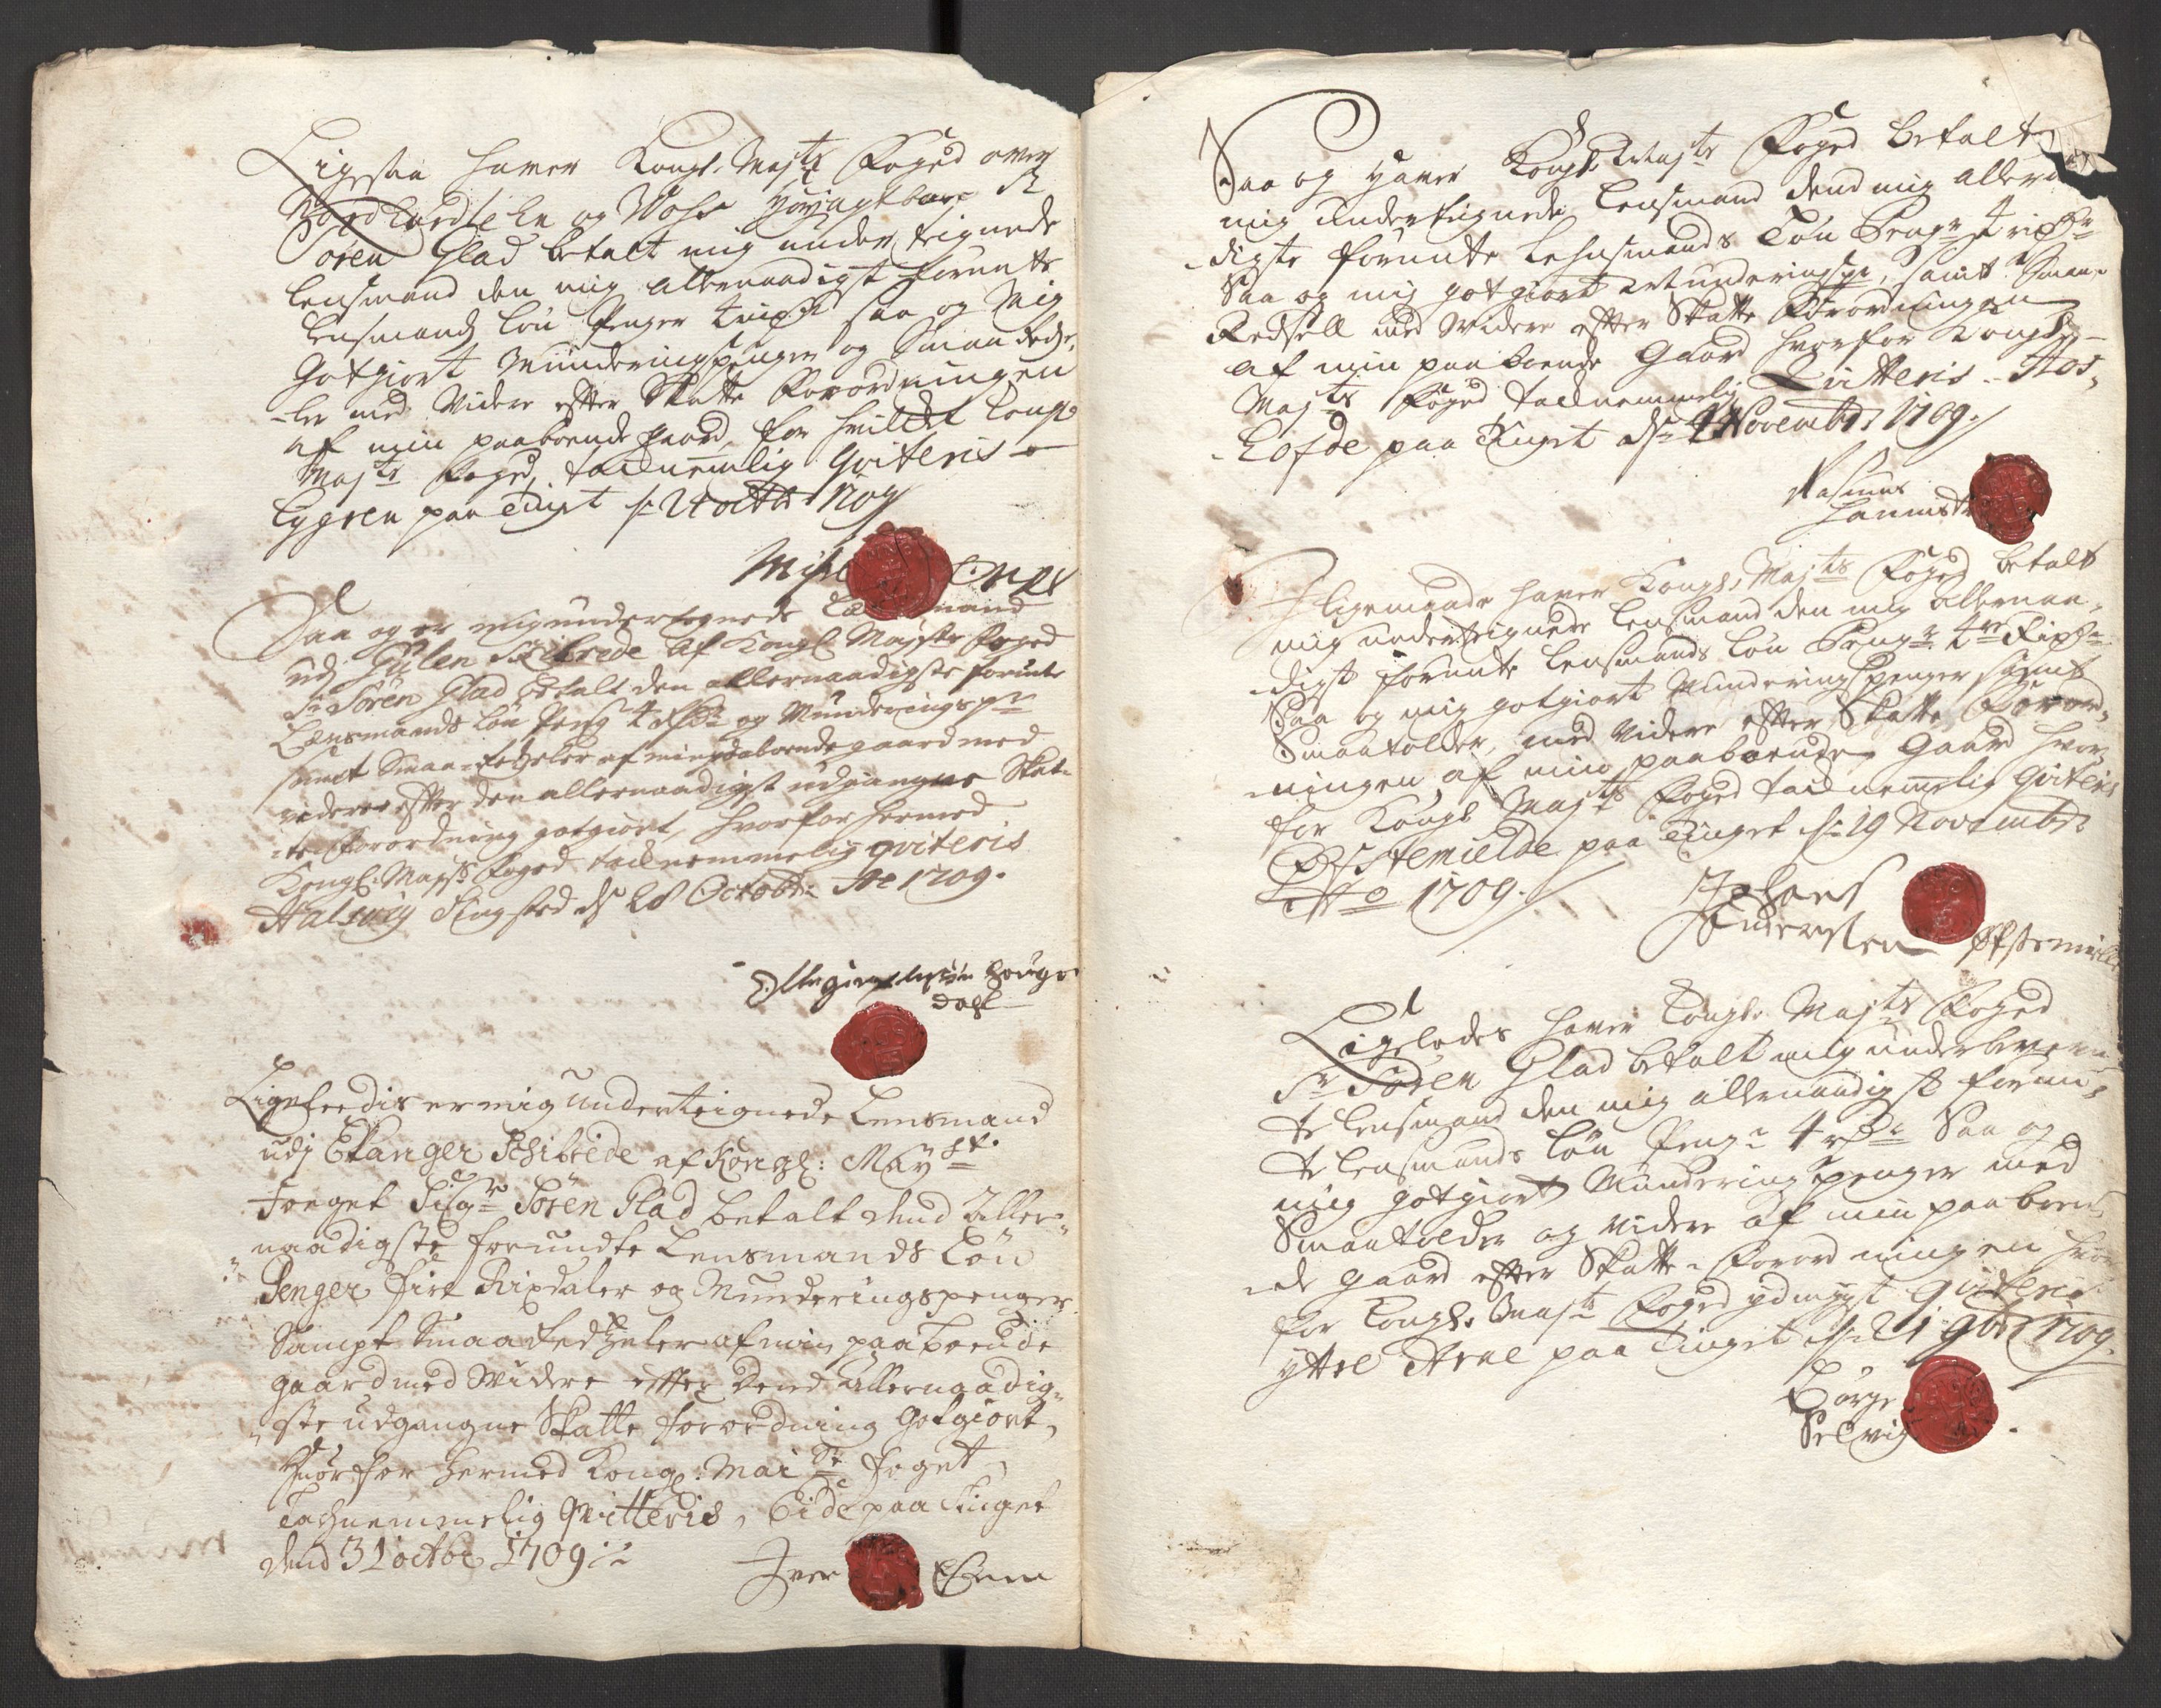 Ligesaa haver Kongl. Majts Foged over
Nordhordlehn og Woss Høyagtbare Sr
Søren Glad betalt mig underteignede
Lensmand den mig allernaadigst forunte
Lensmands løn Penger 4 rixdr saa og Mig
Gotgiort Munderingspenger og Smaa Redse-
ler med Videre efter Skatte Forordningen
af min paaboende gaard, for hvilcket Kongl.
Majts Foged, tacknemlig Qviteris
Lygren paa Tinget d: 24 octbr 1709
Saa og er mig undertegnede Lænsmand
udj Gulen Skibrede af Kongl. Mayts Foged
Sr Søren Glad betalt den allernaadigste forunte
Lænsmands løn Peng 4 rdr og Munderings pr
samt Smaa-Redseler af min paaboende gaard med
videre efter den allernaadigst udgangne Skat-
te-Forordning gotgiort, hvorfor hermed
Kongl. Mayts Foged tacknemmelig qviteris
Halsvig Tingsted ds 28 Octobr: Ao 1709.
Ligeleedis er mig underteignede Lensmand
udj Echanger Schibrede af Kongl: Mayst.
Foeget Sigr Søren Glad betalt dend Aller-
naadigste forundte Lensmands Løn
Penger fire Rixdaler og Munderingspenger
Sampt Smaa Redzeler af min paaboende
gaard med Widere efter dend Allernaadig-
ste udgangne Skatte forordning Gotgiort,
Huorfor Hermed Kongl. Maisr Foget
Tachnemmelig Qvitteris, Eide paa Tinget
dend 31 octbr 1709
Iver
Saa og Haver Kongl. Majts Foged betalt
mig undertegnede Lensmand dend mig allernaa
digste forunte Lehnsmands Løn Pengr 4 rixdr
Saa og mig gotgiort Munderingspr, samt Smaa-
Redsell med Widere efter Skatte Forordningen
af min paaboende Gaard hvorfor Kongl.
Majts Foged tacknemmelig Qvitteris. Hos-
paa Tinget ds 9 Novembr 1709.
Rasmus
J ligemaade haver Kongl. Majts Foged betalt
mig underteignede Lensmand den mig allernaa-
digst forunte Lensmands løn Pengr 4re Rixdr
Saa og mig gotgiort Munderingspenger samt
Smaatolder, med Videre efter Skatte Foror-
ningen af min paaboende Gaard hvor
for Kongl Majts Foged tacknemmelig Qviteris
paa Tinget d: 19 Novembr
Ao 1709.
Johans
Andersen
Ligeledes haver Kongl. Majts Foged
Sr Søren Glad betalt mig underteign
te Lensmand den mig allernaadigst forun-
te Lensmands løn Pengr 4 rdr Saa og
mig gotgiort Munderingspenger med
Smaatolder og Videre af min paaboen
de Gaard efter Skatte-Forordningen hvor
for Kongl. Majts Foged ydmygst Qviteris
yttre Arne paa Tinget d: 21 9br 1709.
Børge
Selvig